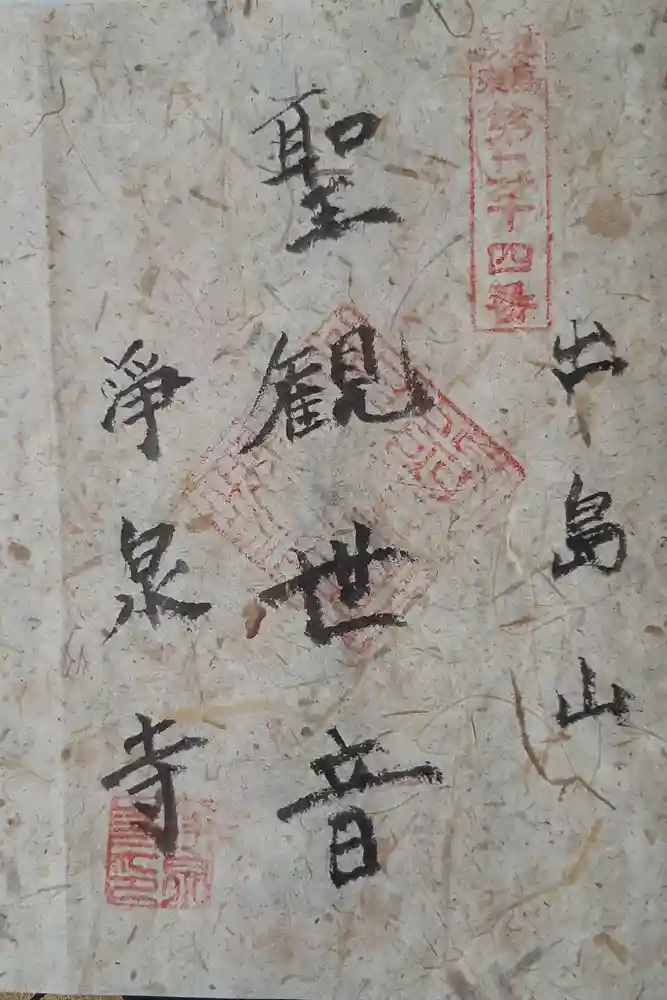 第二十四番
出島山
聖観世音
淨泉寺